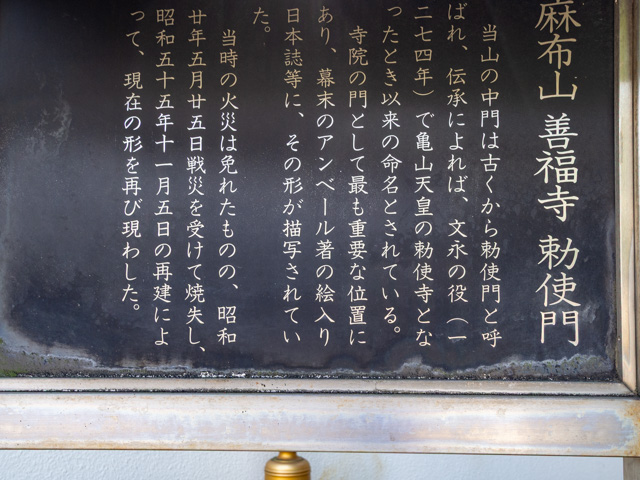 麻布山 善福寺 勅使門
当山の中門は古くから勅使門と呼
ばれ、伝承によれば、文永の役（一
二七四年）で亀山天皇の勅使寺とな
ったとき以来の命名とされている。
寺院の門として最も重要な位置に
あり、幕末のアンベール著の絵入り
日本誌等に、その形が描写されてい
た。
当時の火災は免れたものの、昭和
廿年五月廿五日戦災を受けて焼失し、
昭和五十五年十一月五日の再建によ
って、現在の形を再び現わした。